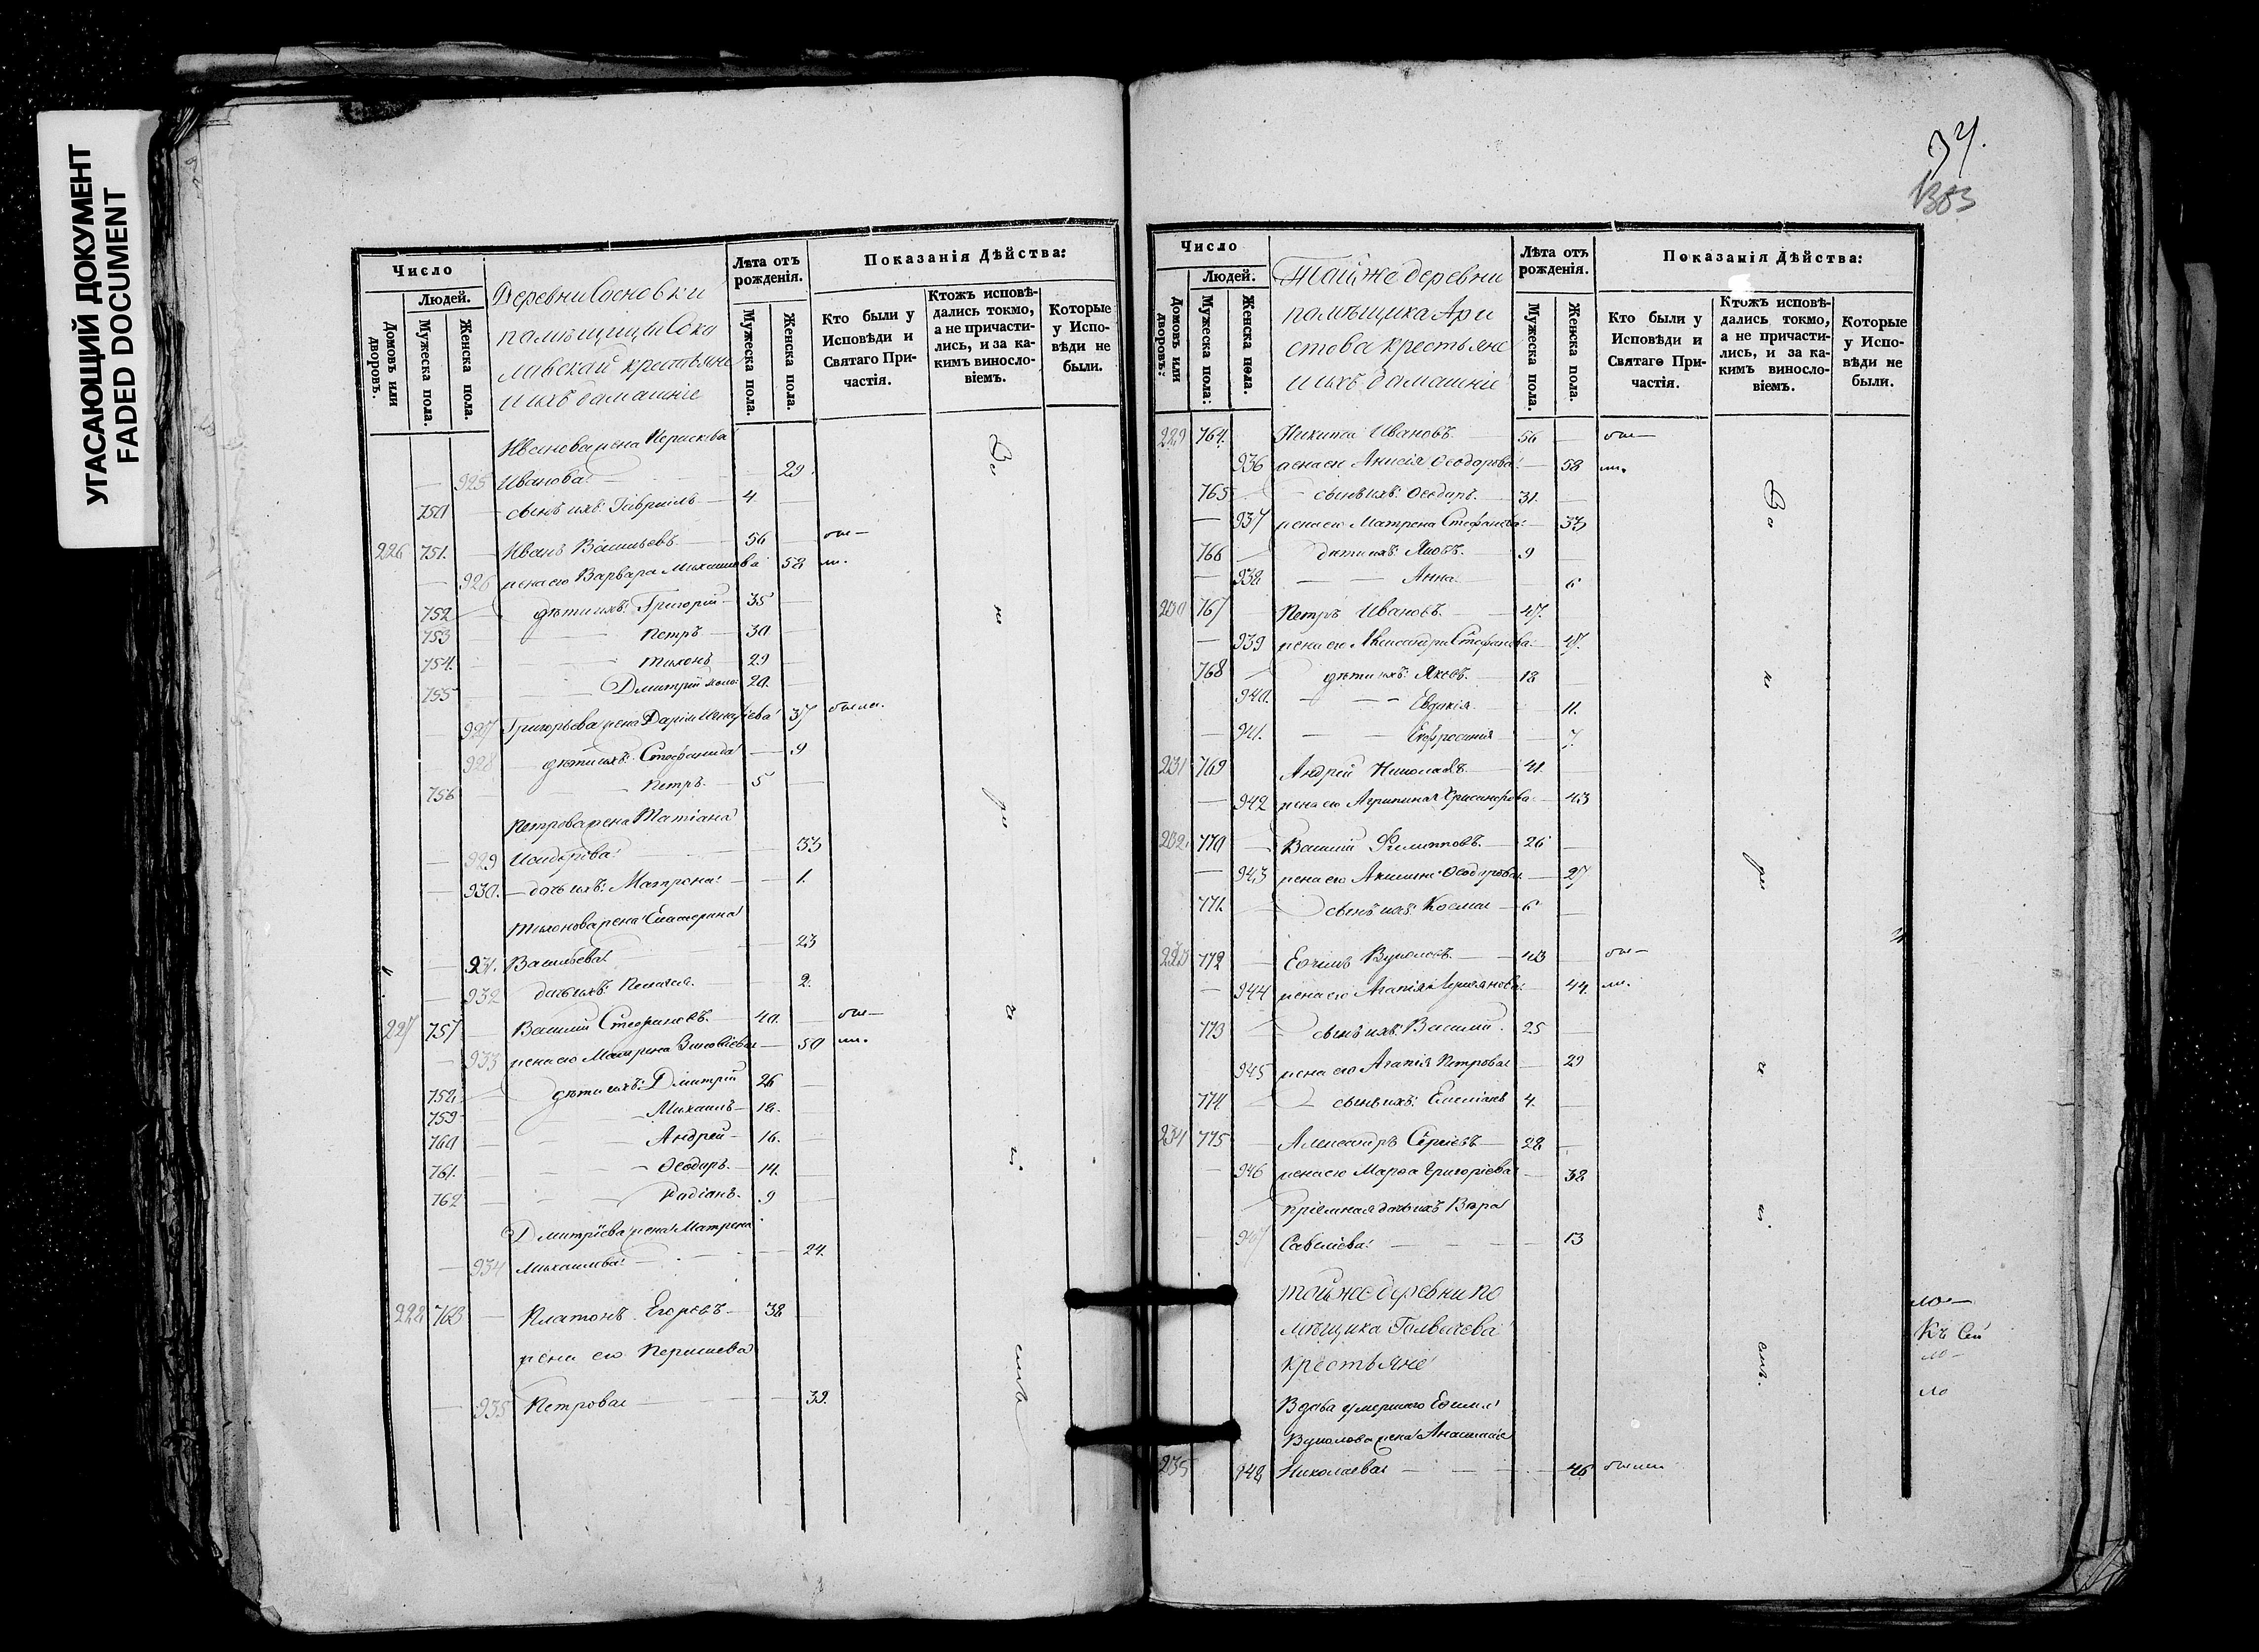 УГАСАЮЩИЙ ДОКУМЕНТ
FADED DOCUMENT
Число
Людей.
Домовъ или дворовъ.
Мужеска пола.
Женска пола.
Деревни Сосновки
помѣщицы Соко
ловской крестьяне
и ихъ домашніе
Лѣта отъ рожденія.
Мужеска пола.
Женска пола.
Показанія Дѣйства:
Кто были у Исповѣди и Святаго Причастія.
Ктожъ исповѣдались токмо, а не причастились, и за какимъ винословіемъ.
Которые у Исповѣди не были.
Иванова жена Параскева
925 Иванова 29.
750 сынъ ихъ: Гавріилъ 4.
226 751. Иванъ Васильевъ 56 бы—
926 жена его Варвара Михаилова 58 ли.
752 дѣти ихъ: Григорій 35
753 Петръ 30
754. Тихонъ 29
755 Дмитрій 20.
927 Григорьева жена Дарія 37 были.
928 дѣти ихъ: Стефанида 9
756 Петръ 5
Петрова жена Татіана
929 33
930. дочь ихъ: Матрона 1.
Тихонова жена Екатерина
931. Васильева 23
932 дочь ихъ: Пелагея 2.
227 757 Василій Стефановъ 40. бы—
933 жена его Матрона 50 ли.
758. дѣти ихъ: Дмитрій 26
759 Михаилъ 18.
760 Андрей 16.
761. Ѳеодоръ 14.
762 Родіонъ 9
Дмитріева жена Матрона
934 Михаилова 24.
228 763 Платонъ Егоровъ 38
жена его
935 Петрова 39.
Во
не
ре
че
ні
емъ
34.
1303
Число
Людей.
Домовъ или дворовъ:
Мужеска пола:
Женска пола.
Той же деревни
помѣщика Ари
стова крестьяне
и ихъ домашніе
Лѣта отъ рожденія.
Мужеска пола.
Женска пола.
Показанія Дѣйства:
Кто были у Исповѣди и Святаго Причастія.
Ктожъ исповѣдались токмо, а не причастились, и за какимъ винословіемъ.
Которые у Исповѣди не были.
229 764. Никита Ивановъ 56 бы—
936 жена его Анисія Ѳеодорова 58 ли.
765 сынъ ихъ: Ѳеодоръ 31.
937 жена его Матрена Стефанова 33
766 дѣти ихъ: Яковъ 9
938 Анна 6
230 767 Петръ Ивановъ 47.
939 жена его Александра Стефанова 47.
768 дѣти ихъ: Яковъ 18
940. Евдокія 11.
941. Евфросинія 7.
231 769 Андрей Николаевъ 41.
942 жена его Агрипина 43
232. 770 Василій Филипповъ 26
943 жена его Акилина Ѳеодорова 27
771. сынъ ихъ: Косма 6
233 772 Еѳимъ Вуколовъ 43 бы—
944 жена его Агапія 44. ли.
773 сынъ ихъ: Василій 25
945 жена его Агапія Петрова 29
774 сынъ ихъ: Емеліанъ 4.
234 775 Александръ Сергіевъ 28
946 жена его Марѳа Григоріева 38
Пріемная дочь ихъ Вѣра
947 Савеліева 13
Той же деревни по
мѣщика
крестьяне
Вдова умершаго Еѳима
Вуколова жена Анастасія
235 948 Николаева 46 были
Во
не
ре
че
ні
емъ.
ло—
Къ Сей
ло—
ло